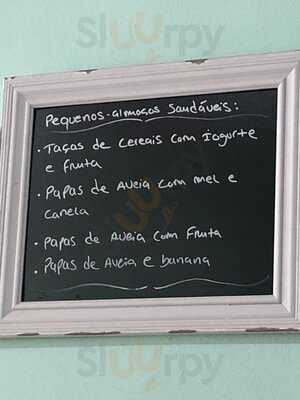 Sluurpy
Pequenos-almoços saudáveis:
• Taças de cereais com iogurte
e fruta
• Papas de Aveia com mel e
canela
• Papas de Aveia com Fruta
• Papas de Aveia e banana
Sluurpy